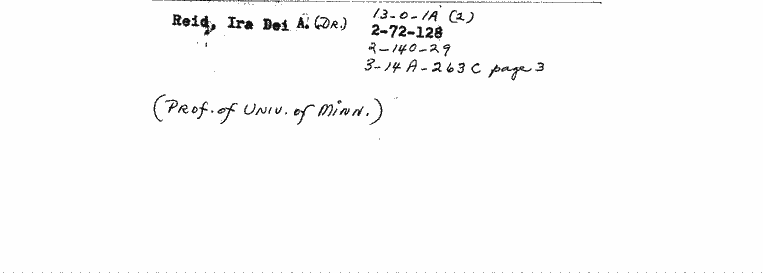 Reid, Ira Dei A. (DR.) 13-0-1A (2)
2-72-128
2-140-29
3-14A-263C page 3
(PROF. of UNIV. of MINN.)